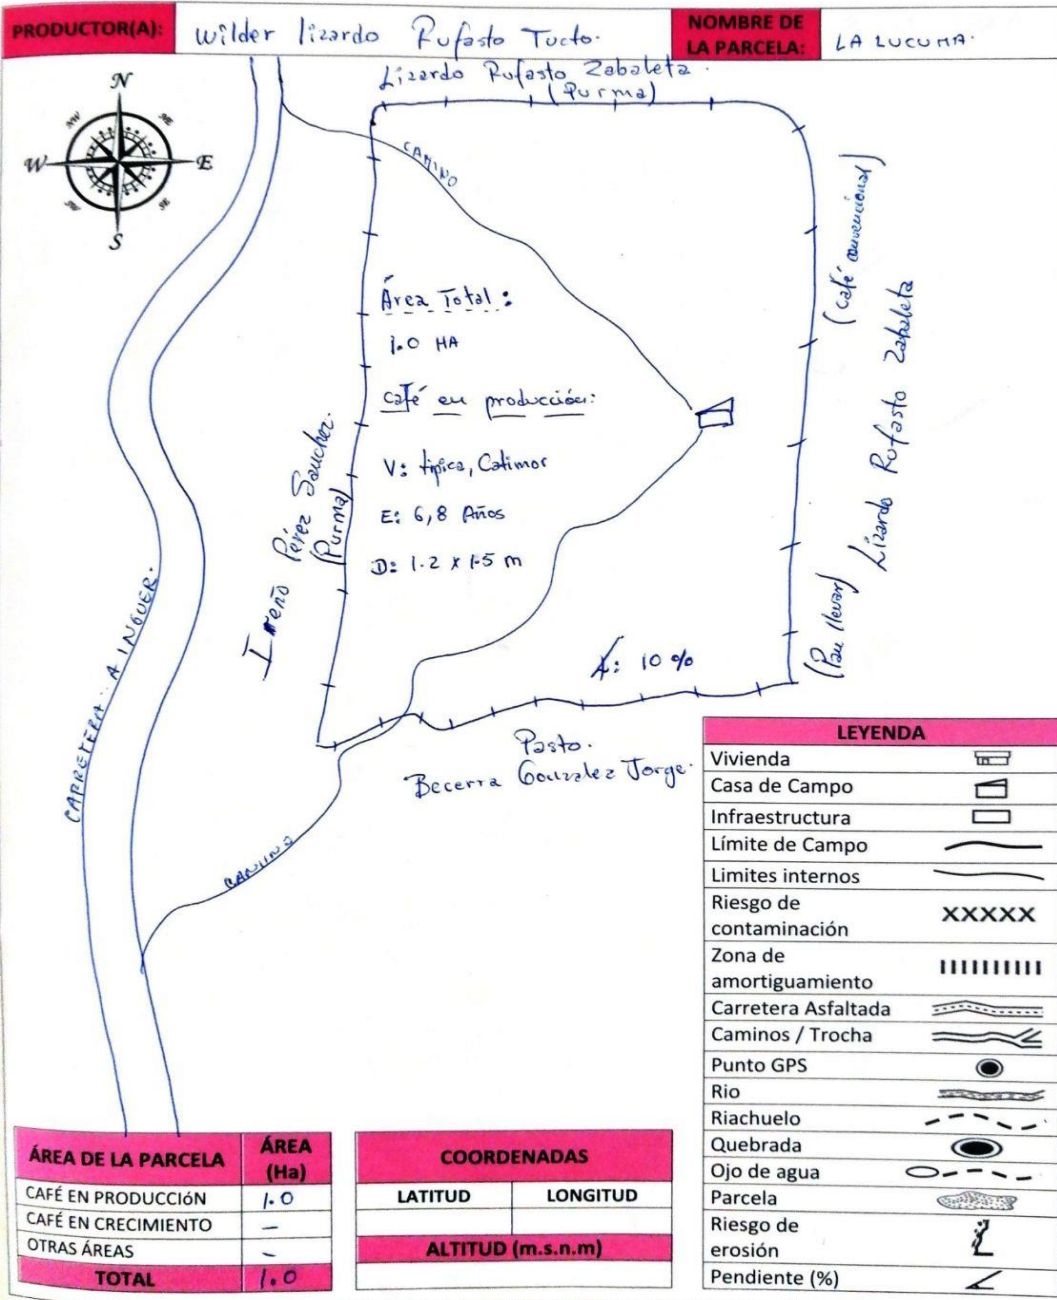 PRODUCTOR(A): Wilder lizardo Rufasto Tucto. NOMBRE DE LA PARCELA: LA LUCUMA.
Lizardo Rufasto Zabaleta.
(Purma)
N
NW NE
W E
SW SE
S
CAMINO
Área Total:
1.0 HA
café en producción:
V: típica, Catimor
E: 6,8 Años
D: 1.2 x 1.5 m
Pérez Sanchez.
(Purma)
(café convencional)
Lizardo Rufasto Zabaleta
(Pan llevar)
CARRETERA A INGUER.
: 10 %
Pasto.
Becerra Gonzalez Jorge.
CAMINO
LEYENDA
Vivienda
Casa de Campo
Infraestructura
Límite de Campo
Limites internos
Riesgo de contaminación XXXXX
Zona de amortiguamiento
Carretera Asfaltada
Caminos / Trocha
Punto GPS
Rio
Riachuelo
Quebrada
Ojo de agua
Parcela
Riesgo de erosión
Pendiente (%)
ÁREA DE LA PARCELA ÁREA (Ha)
CAFÉ EN PRODUCCIÓN 1.0
CAFÉ EN CRECIMIENTO –
OTRAS ÁREAS –
TOTAL 1.0
COORDENADAS
LATITUD LONGITUD
ALTITUD (m.s.n.m)